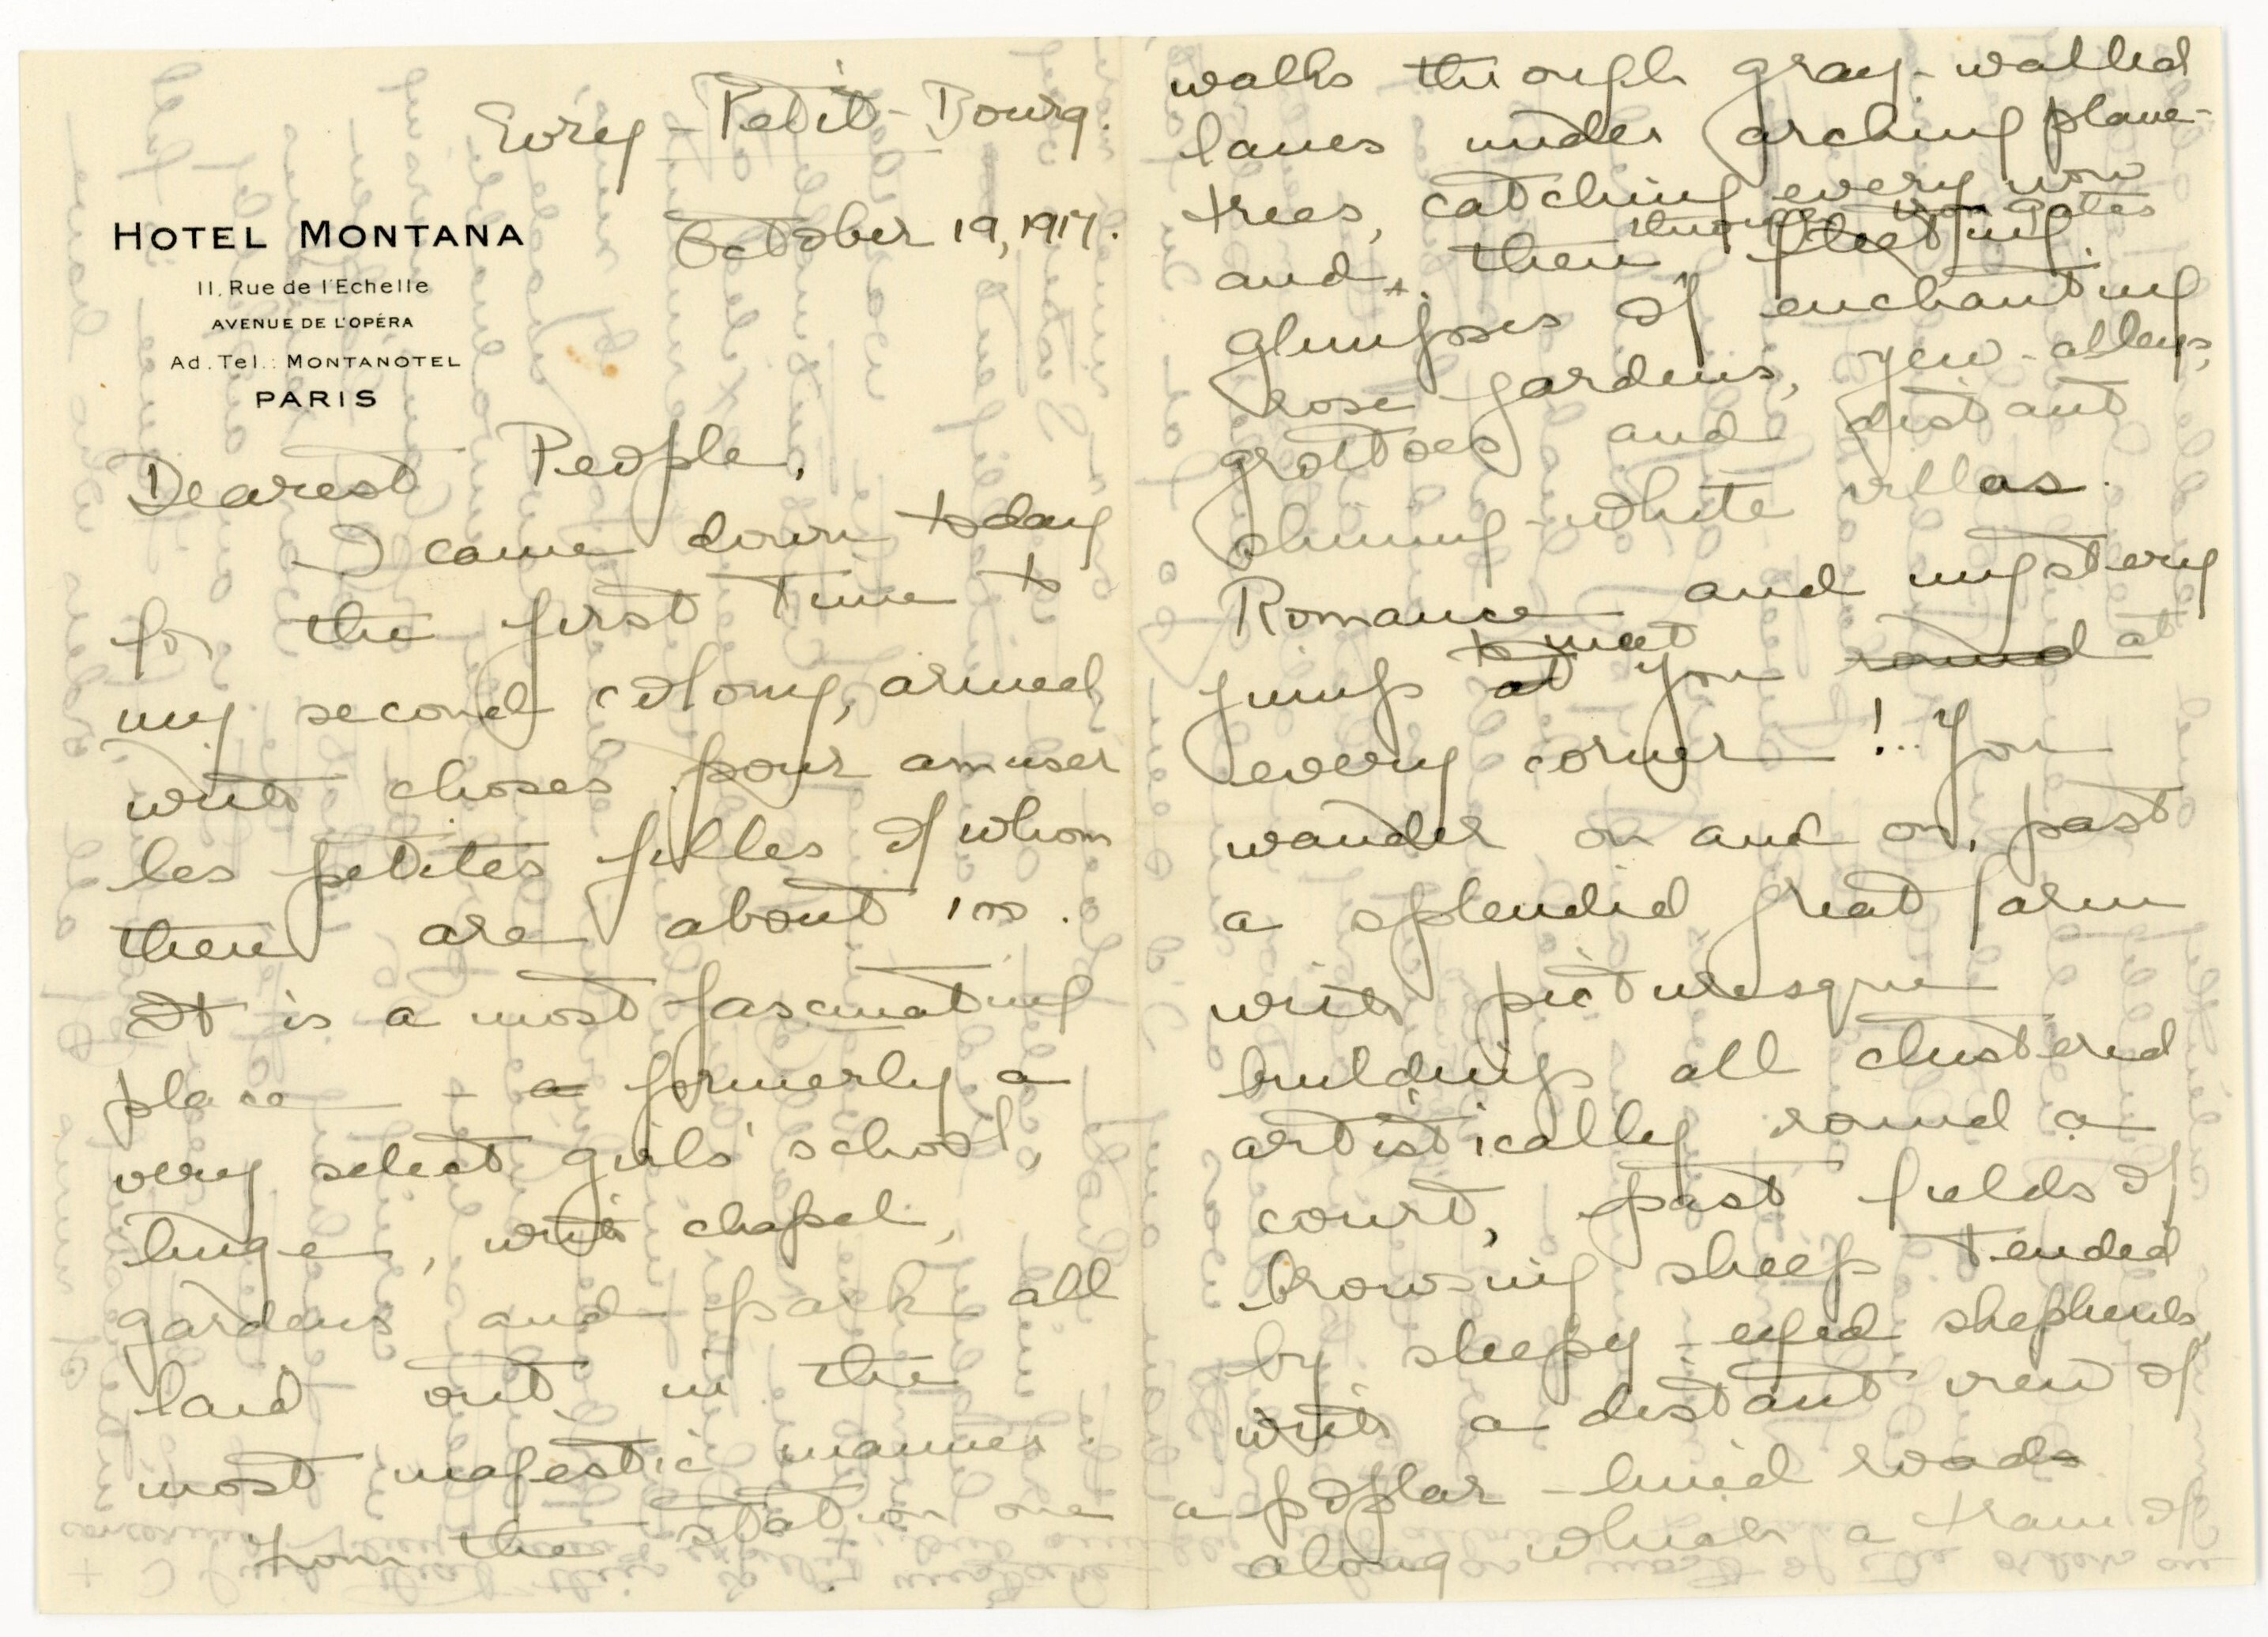 Evry-Petit-Bourg.
October 19, 1917.
HOTEL MONTANA
11, Rue de l'Echelle
AVENUE DE L'OPÉRA
Ad. Tel.: MONTANOTEL
PARIS
Dearest People,
I came down today
for the first time to
my second colony, armed
with choses pour amuser
les petites filles of whom
there are about 100.
It is a most fascinating
place - a formerly a
very select girls' school,
huge, with chapel,
gardens and park all
laid out in the
most majestic manner.
From the station one
walks through gray-walled
lanes under arching plane-
trees, catching every now
through iron gates
and then fleeting
glimpses of enchanting
rose gardens, yew-alleys,
grottoes and distant
shining-white villas.
Romance and mystery
to meet
jump at you round at
every corner!.. You
wander on and on, past
a splendid great farm
with picturesque
buildings all clustered
artistically round a
court, past fields of
browsing sheep tended
by sleepy-eyed shepherds,
with a distant view of
a poplar-lined roads
along which a tram of